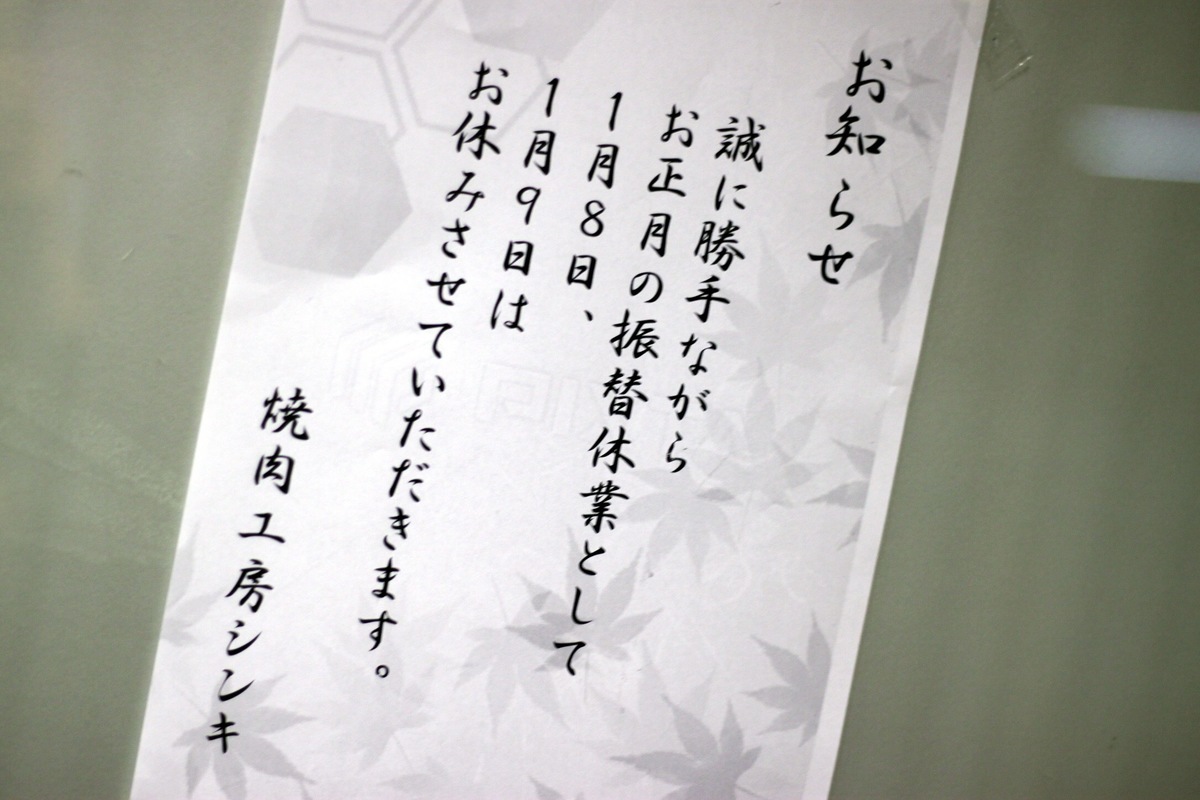 お知らせ
誠に勝手ながら
お正月の振替休業として
1月8日、
1月9日は
お休みさせていただきます。
焼肉工房シンキ